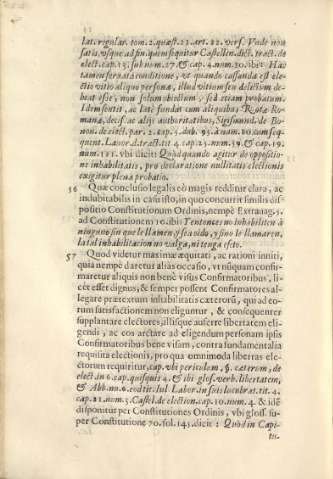 lat. regular. tom. 2. quæst. 21. art. 22. vers. Vnde non
satis, vsque ad fin. quem sequitur Castellin. dict. tract. de
elect. cap. 13. sub num. 27. & cap. 4. num. 20. ibi: Hac
tamen seruata conditione, vt quando cassanda est ele-
ctio vitio aliquo personæ, illud vitium seu delictum de-
beat esse, non solum obiectum, sed etiam probatum.
Idem sentit, ac late fundat cum aliquibus Rotæ Ro-
manæ, decis. ac alijs authoritatibus, Sigismund. de Bo-
non. de elect. par. 2. cap. 3. dub. 95. à num. 10. cum seq-
quent. Labor. d. tractit. 4. cap. 25. num. 39. & cap. 19.
num. 121. vbi dicit: Quod quando agitur de oppositio-
ne inhabilitatis, pro declaratione nullitatis electionis
exigitur plena probatio.
56 Quæ conclusio legalis eò magis redditur clara, ac
indubitabilis in casu isto, in quo concurrit similis dis-
positio Constitutionum Ordinis, nempè Extrauag. 15
ad Constitutionem 70. ibi: Tententes no inhabiliten à
ninguno sin que le llamen, y sea oido, y si no le llamaren,
la tal inhabilitacion no valga, ni tenga efeto.
57 Quod videtur maximè æquitati, ac rationi inniti,
quia nempè daretur alias occasio, vt nusquam confir-
maretur aliquis non bene visus Confirmatoribus, li-
cèt esset dignus, & semper possent Confirmatores al-
legare prætextum inhabilitatis cæterorũ, qui ad eo-
rum satisfactionem non eliguntur, & consequenter
supplantare electores, illisque auferre libertatem eli-
gendi, ac eos arctare ad eligendum personam ipsis
Confirmatoribus bene visam, contra fundamentalia
requisita electionis, pro qua omnimoda libertas ele-
ctorum requiritur, cap. vbi periculum, §. cæterum, de
elect. in 6. cap. quisquis 4. & ibi glos. verb. libertatem,
& Abb. nu. 6. eod. tit. Iul. Labor. in suis lucubrat. tit. 4.
cap. 21. num. 5. Castel. de election. cap. 10. num. 4. & idē
disponitur per Constitutiones Ordinis, vbi gloss. su-
per Constitutione 70. fol. 145. dicit: Quod in Capi-
tu-